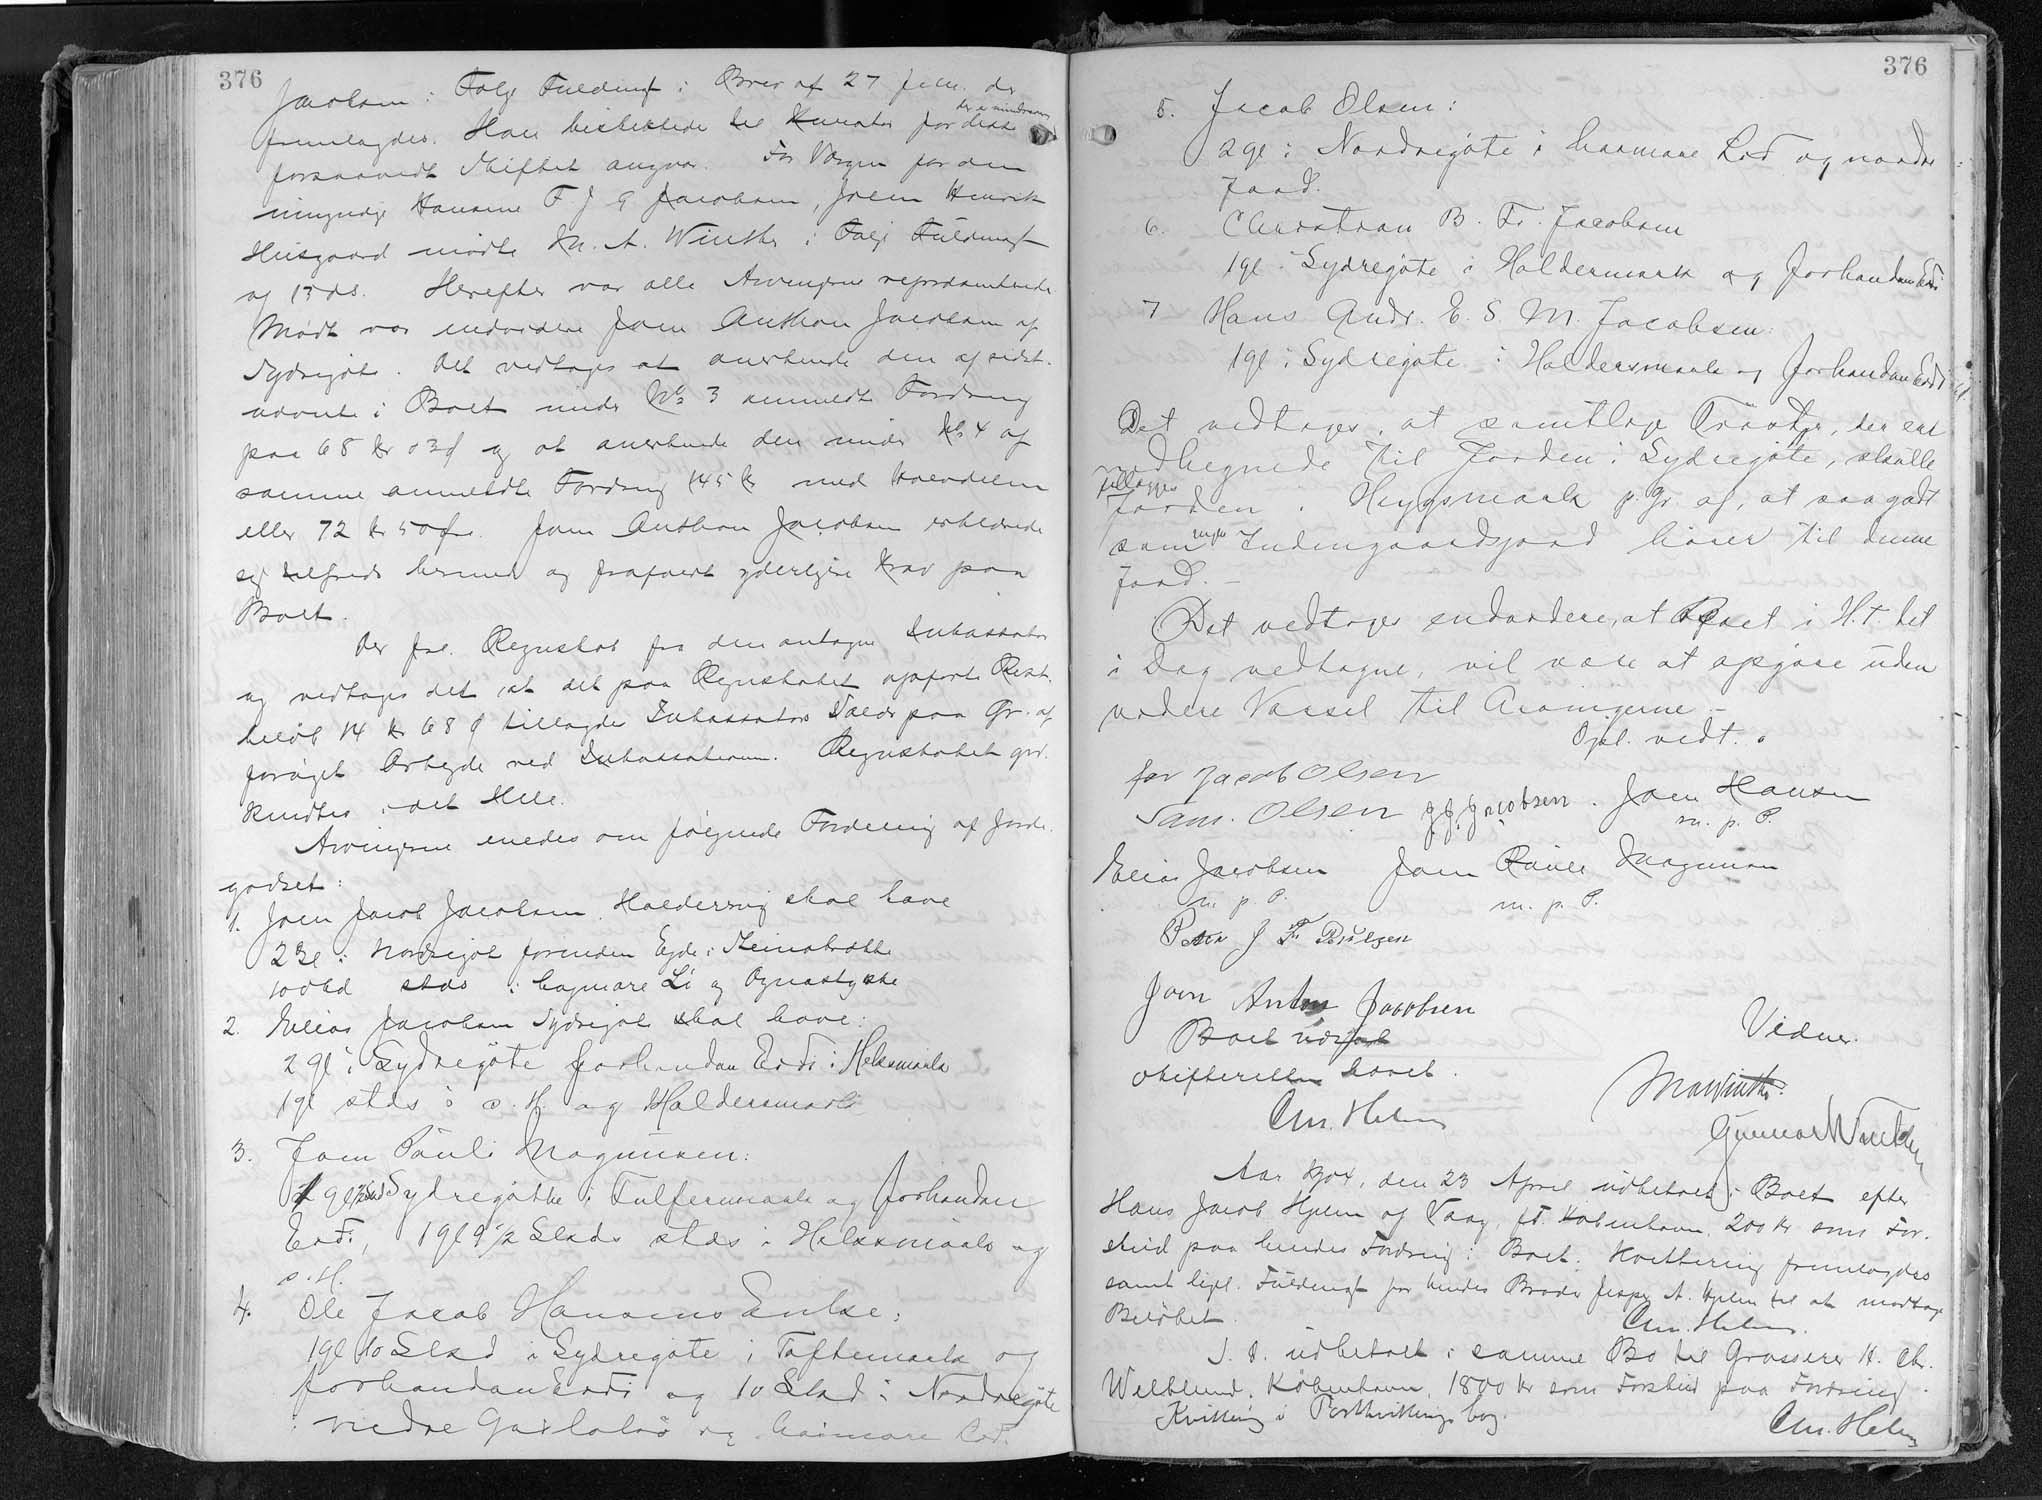 376
Jacobsen i Følge Fuldmagt i Brev af 27 Jan. der
fremlagdes. Han beskikkede til Kurator for disse
der er mindreaar
forsaavidt Skiftet angaar. For Værgen for den
umyndige Hansine F J G Jacobsen, Joen Henrik
Husgaard mødte M. A. Winther i Følge Fuldmagt
af 13 ds. Herefter var alle Arvingerne repræsenterede
Mødt var endvidere Joen Anthon Jacobsen af
Sydregøte. Det vedtages at anerkende den af sidst-
nævnte i Boet under No 3 anmeldte Fordring
paa 68 Kr 03 Ø og at anerkende den under No 4 af
samme anmeldte Fordring 145 Kr med Halvdelen
eller 72 Kr 50 Øre. Joen Anthon Jacobsen erklærede
sig tilfreds hermed og frafaldt yderligere Krav paa
Boet.
Der frl. Regnskab fra den antagne Inkassator
og vedtages det at det paa Regnskabet opførte Rest-
beløb 14 Kr 68 Ø tillagdes Inkassator Valdr paa Gr. af
forøget Arbejde ved Inkassationen. Regnskabet god-
kendtes i det Hele.
Arvingerne enedes om følgende Fordeling af Jorde-
godset:
1. Joen Jacob Jacobsen Haldersvig skal have
2 Gl i Nordregøte forinden Egde i Steinabrække
10 Skd stds i hagmare Li og Ognastykke
2. Elias Jacobsen Sydregøte skal have:
2 gl i Sydregøte forhandan Erdi i Helsmark
1 gl stds i s. H. og Haldersmark
3. Joen Pauli Magnusen:
1 gl Sydregøthe i Tulfersmark og forhandan
Erdi, 1 gl 9 1/2 Sknds stds i Helsmark og
s. H.
4. Ole Jacob Hansens Enke:
1 gl 10 Sknd i Sydregøte i Toftemark og
forhandan Erdi og 10 Sknd i Nordregøte
i nedre og haimare Lid.
376
5. Jacob Olsen:
2 gl i Nordregøte i haimare Lid og nordr
Jord.
6. Christian B. Fr. Jacobsen
1 gl i Sydregøte i Haldersmark og forhandan Erdi
7 Hans Andr. E. S. M. Jacobsen:
1 gl i Sydregøte i Haldersmark og forhandan Erdi
Det vedtages, at samtlige Trøer, der ere
indhegnede til Jorden i Sydregøte, skulle
tillægges
Jorden i Heygsmark p. Gr. af, at saa godt
som ingen Indengaardsjord hører til denne
Jord. –
Det vedtages endvidere, at Boet i H. t. det
i Dag vedtagne, vil være at opgjøre uden
videre Varsel til Arvingerne –
Opl. vedt.
for Jacob Olsen
Sam. Olsen J. J. Jacobsen. Joen Hansen
m. p. P.
Elias Jacobsen Joen Pauli Magnusen
m. p. P. m. p. P.
Peter J Fr Poulsen
Joen Anton Jacobsen
Boet udsat Vidner.
Skifteretten hævet. M A Winther.
Chr. Holm Gunnar Winther
Aar 1904, den 23 April udbetalt i Boet efter
Hans Jacob Hjelm af Vaag, pt. København, 200 Kr som For-
skud paa hendes Fordring i Boet. Kvittering fremlagdes
samt ligel. Fuldmagt for hendes Broder Jesper A. Hjelm til at modtage
Beløbet. Chr. Holm.
S. D. udbetalt i samme Bo til Grosserer H. Chr.
Wellblund, København, 1800 Kr som Forskud paa Fordring.
Kvittering i Postkvitteringsbog.
Chr. Holm